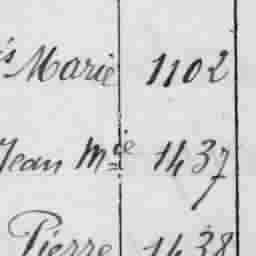 is Marie 1102
Jean Mie 1437
Pierre 1438